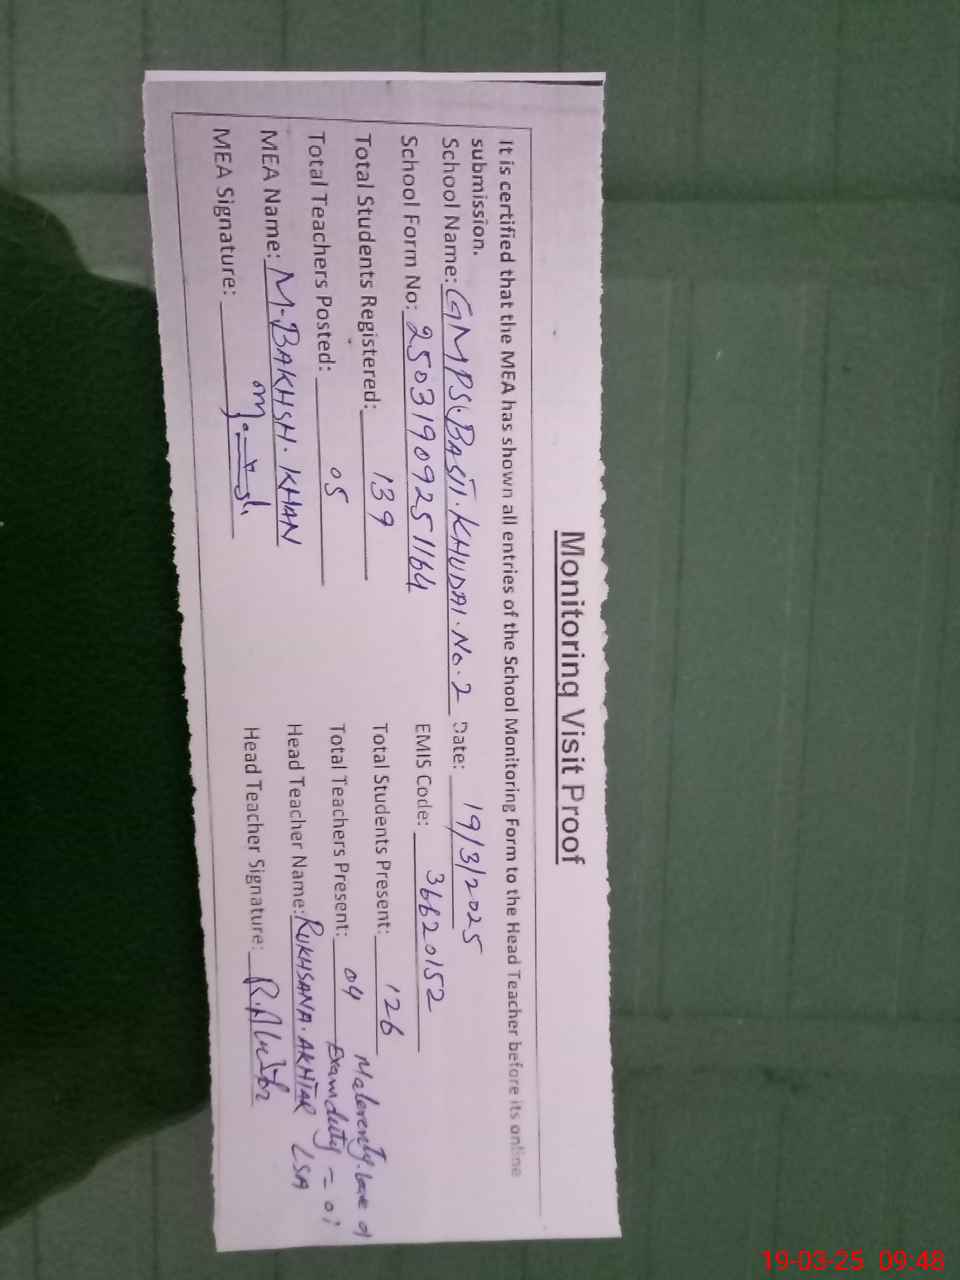 Monitoring Visit Proof
It is certified that the MEA has shown all entries of the School Monitoring Form to the Head Teacher before its online
submission.
School Name: GMPS.BASTI.KHUDAI.No.2 Date: 19/3/2025
School Form No: 25031909251164 EMIS Code: 36620152
Total Students Registered: 139 Total Students Present: 126
Total Teachers Posted: 05 Total Teachers Present: 04 Maternity leave
Exam duty = 01
MEA Name: M.BAKHSH.KHAN Head Teacher Name: RUKHSANA.AKHTAR LSA
MEA Signature: Head Teacher Signature: R.Akhtar
19-03-25 09:48